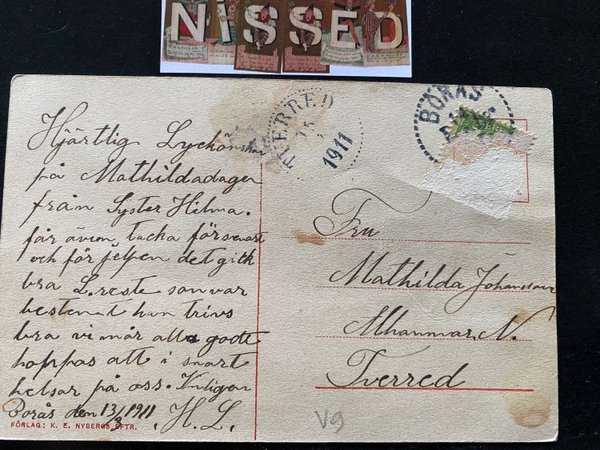 NISSED
TVERRED
1911
BORÅS
Hjärtlig Lyckönskan
på Mathildadagen
från Syster Hilma.
får även tacka för senast
och för jelpen det gick
bra L. reste som var
bestemt han trivs
bra vi mår alla godt
hoppas att i snart
helsar på oss.
Borås den 13/3 1911 H. L.
FÖRLAG: K. E. NYBERGS EFTR.
Fru
Mathilda Johansson
N.
Tverred
V9